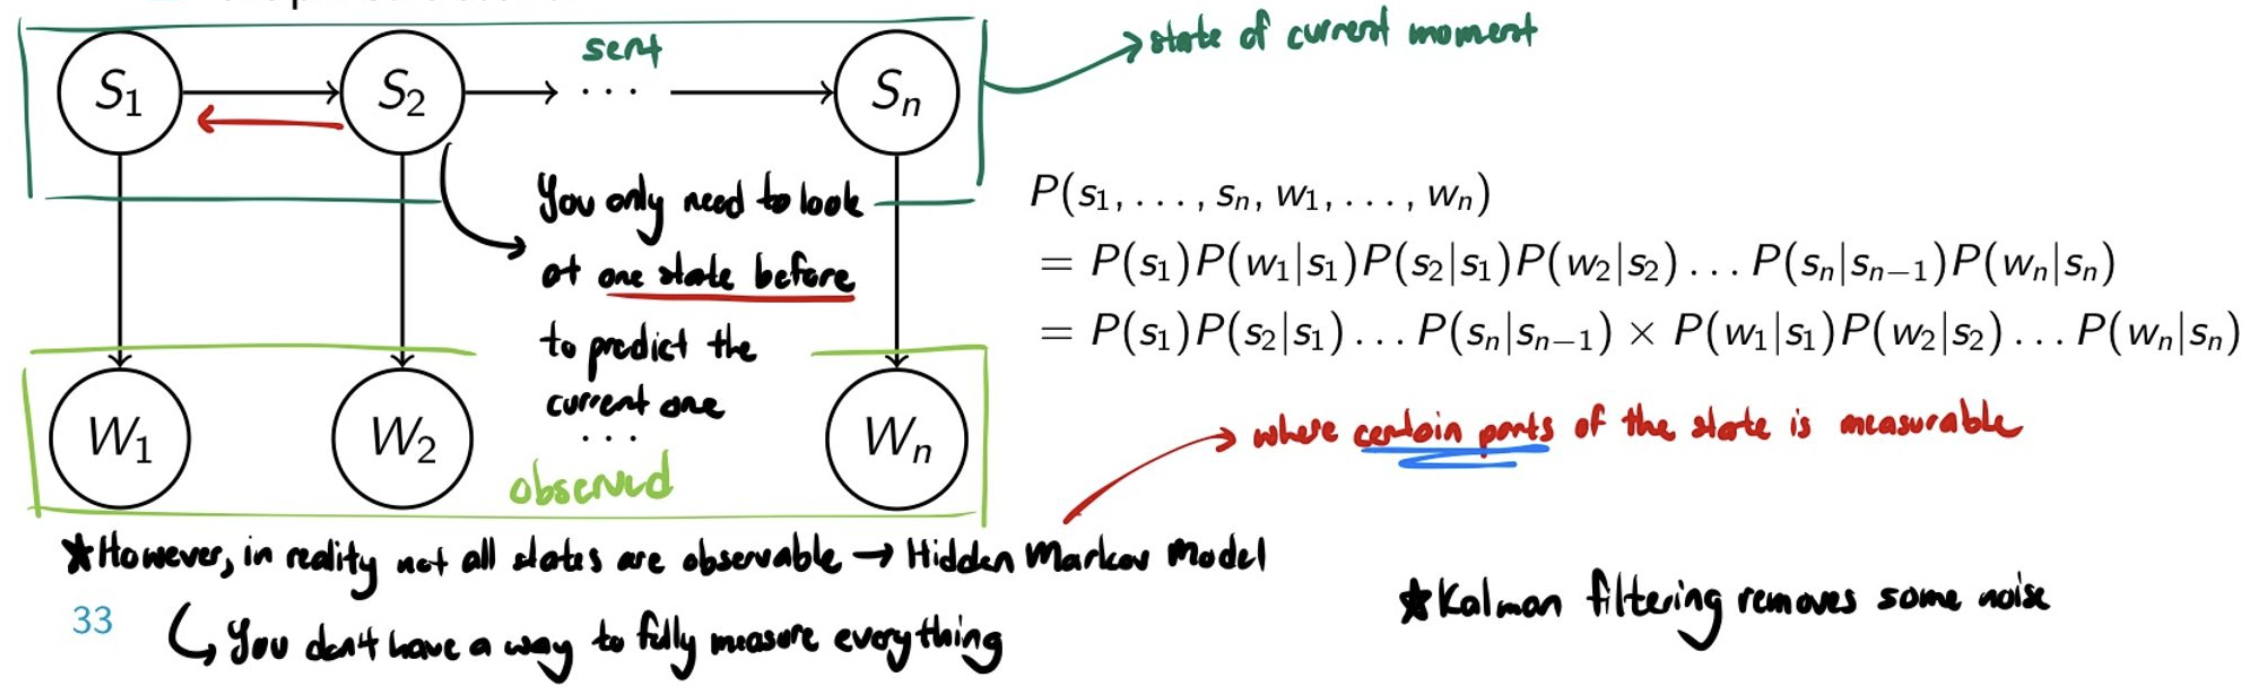 sent
state of current moment
S₁ S₂ ... Sₙ
You only need to look
at one state before
to predict the
current one
P(s₁, . . . , sₙ, w₁, . . . , wₙ)
= P(s₁)P(w₁|s₁)P(s₂|s₁)P(w₂|s₂) . . . P(sₙ|sₙ₋₁)P(wₙ|sₙ)
= P(s₁)P(s₂|s₁) . . . P(sₙ|sₙ₋₁) × P(w₁|s₁)P(w₂|s₂) . . . P(wₙ|sₙ)
W₁ W₂ ... Wₙ
observed
where certain parts of the state is measurable
★However, in reality not all states are observable → Hidden Markov Model
You don't have a way to fully measure everything
★Kalman filtering removes some noise
33